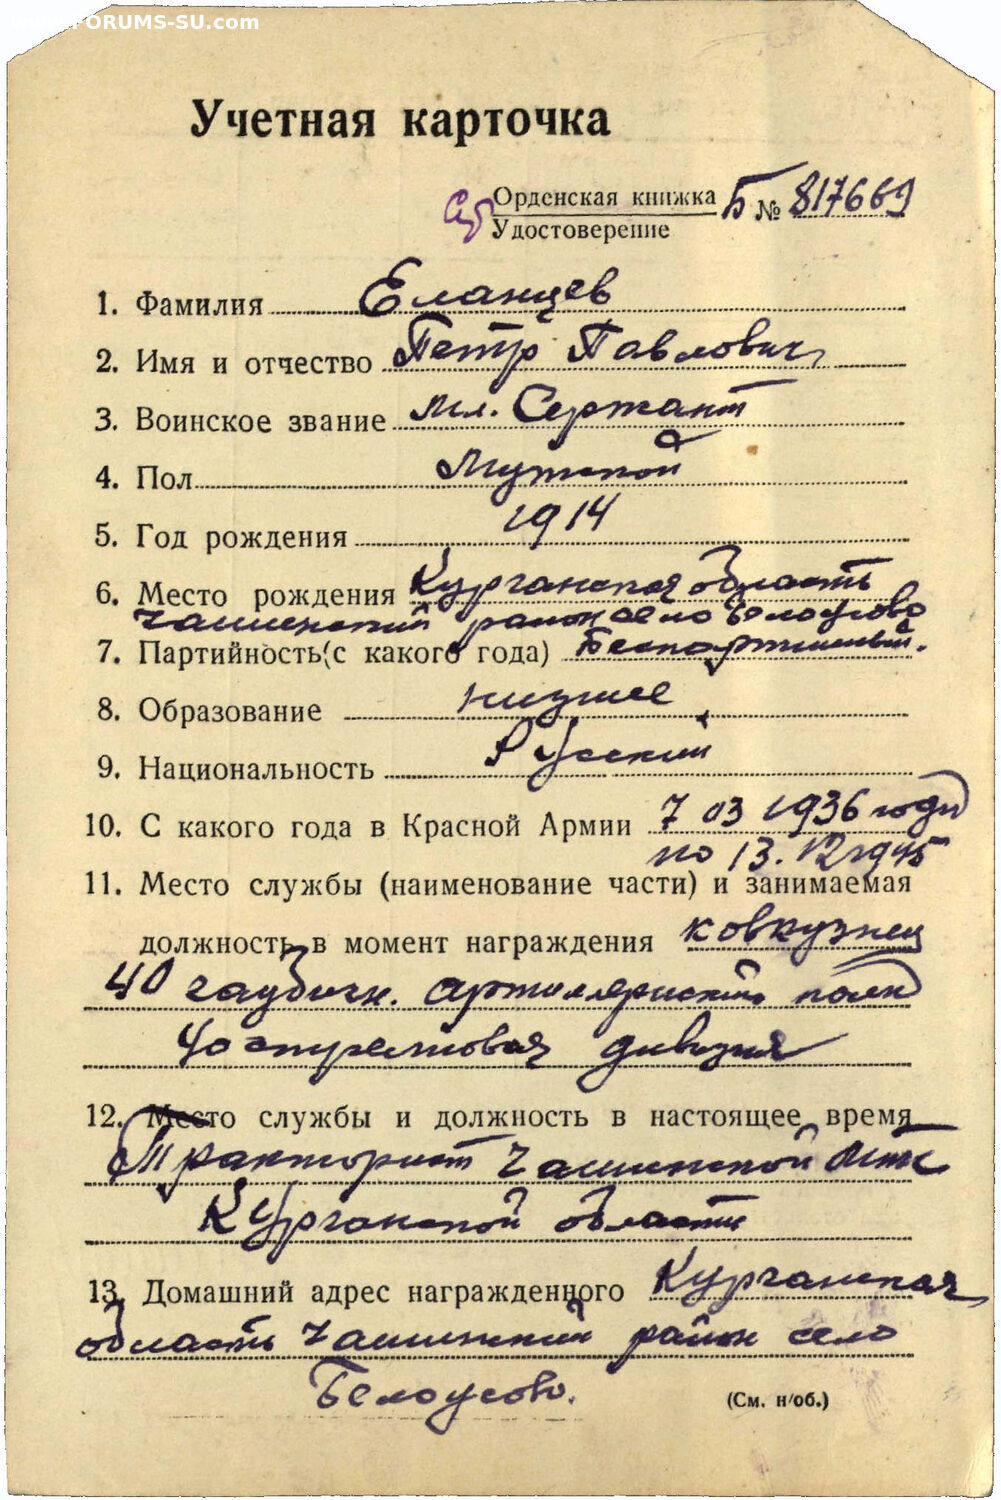 FORUMS-SU.com
Учетная карточка
Орденская книжка Б № 817669
Удостоверение
1. Фамилия Еланцев
2. Имя и отчество Петр Павлович
3. Воинское звание мл. Сержант
4. Пол Мужской
5. Год рождения 1914
6. Место рождения Курганская область
Чашинский район село Белоусово
7. Партийность (с какого года) Беспартийный.
8. Образование низшее
9. Национальность Русский
10. С какого года в Красной Армии 7 03 1936 года
по 13. 12 1945
11. Место службы (наименование части) и занимаемая
должность в момент награждения ковкузнец
40 гаубичн. артиллерийский полк
стрелковая дивизия
12. Место службы и должность в настоящее время
Тракторист Чашинской мтс
Курганской области
13. Домашний адрес награжденного Курганская
область Чашинский район село
Белоусово.
(См. н/об.)